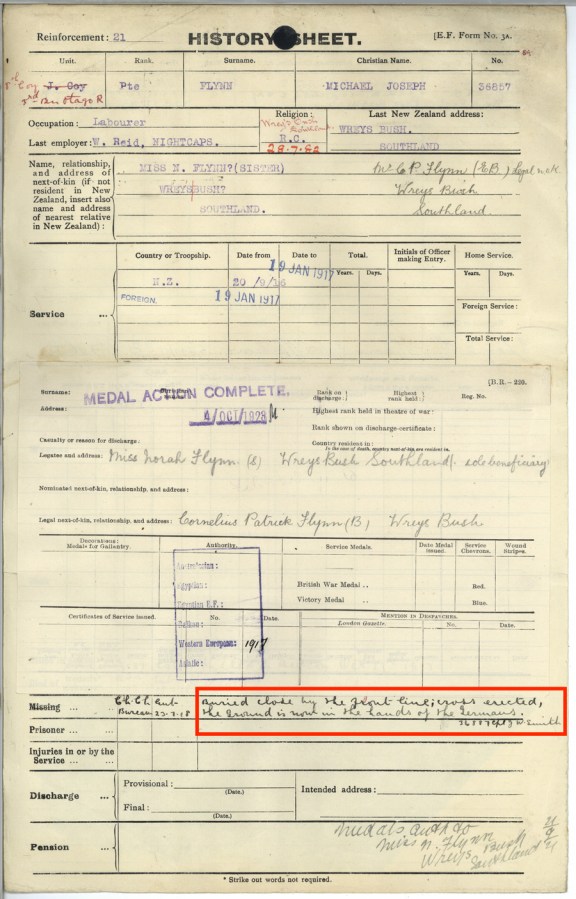 Reinforcement: 21
HISTORY SHEET.
[E.F. Form No. 3A.
Unit.
Rank.
Surname.
Christian Name.
No.
J. Coy
Pte
FLYNN
MICHAEL JOSEPH
36857
Occupation: Labourer
Religion:
R.C.
Last New Zealand address:
WREYS BUSH.
SOUTHLAND
Last employer: W. Reid, NIGHTCAPS.
Name, relationship,
and address of
next-of-kin (if not
resident in New
Zealand, insert also
name and address
of nearest relative
in New Zealand):
MISS N. FLYNN?(SISTER)
WREYS BUSH?
SOUTHLAND.
Mr C P. Flynn (E.B.) Legal n.o.k
Wreys Bush
Southland
Country or Troopship.
Date from
Date to
Total.
Initials of Officer
making Entry.
Home Service.
Years.
Days.
Years.
Days.
Service ...
N.Z.
20/9/16
19 JAN 1917
FOREIGN.
19 JAN 1917
Foreign Service:
Total Service:
[B.R.—228.
Surname:
MEDAL ACTION COMPLETE.
4/OCT/1928
Rank on
discharge:
Highest
rank held:
Reg. No.
Address:
Highest rank held in theatre of war:
Rank shown on discharge-certificate:
Casualty or reason for discharge:
Country resident in:
In the case of death, country next-of-kin are resident in.
Legatee and address: Miss Norah Flynn (S) Wreys Bush Southland sole beneficiary
Nominated next-of-kin, relationship, and address:
Legal next-of-kin, relationship, and address: Cornelius Patrick Flynn (B) Wreys Bush
Decorations:
Medals for Gallantry.
Authority.
Service Medals.
Date Medal
issued.
Service
Chevrons.
Wound
Stripes.
Australasian:
Egyptian:
Egyptian E.F.:
Balkan:
Western European: 1917
Asiatic:
British War Medal ..
Red.
Victory Medal ..
Blue.
Certificates of Service issued.
No.
Date.
MENTION IN DESPATCHES.
London Gazette.
No.
Date.
Missing ...
Bureau 22-3-18
Buried close by the front line; cross erected,
the ground is now in the hands of the Germans.
Smith
Prisoner ...
Injuries in or by the
Service ...
Discharge ...
Provisional:
(Date.)
Final:
(Date.)
Intended address:
Pension ...
Medals auth to
Miss N. Flynn
Wreys Bush
Southland
* Strike out words not required.